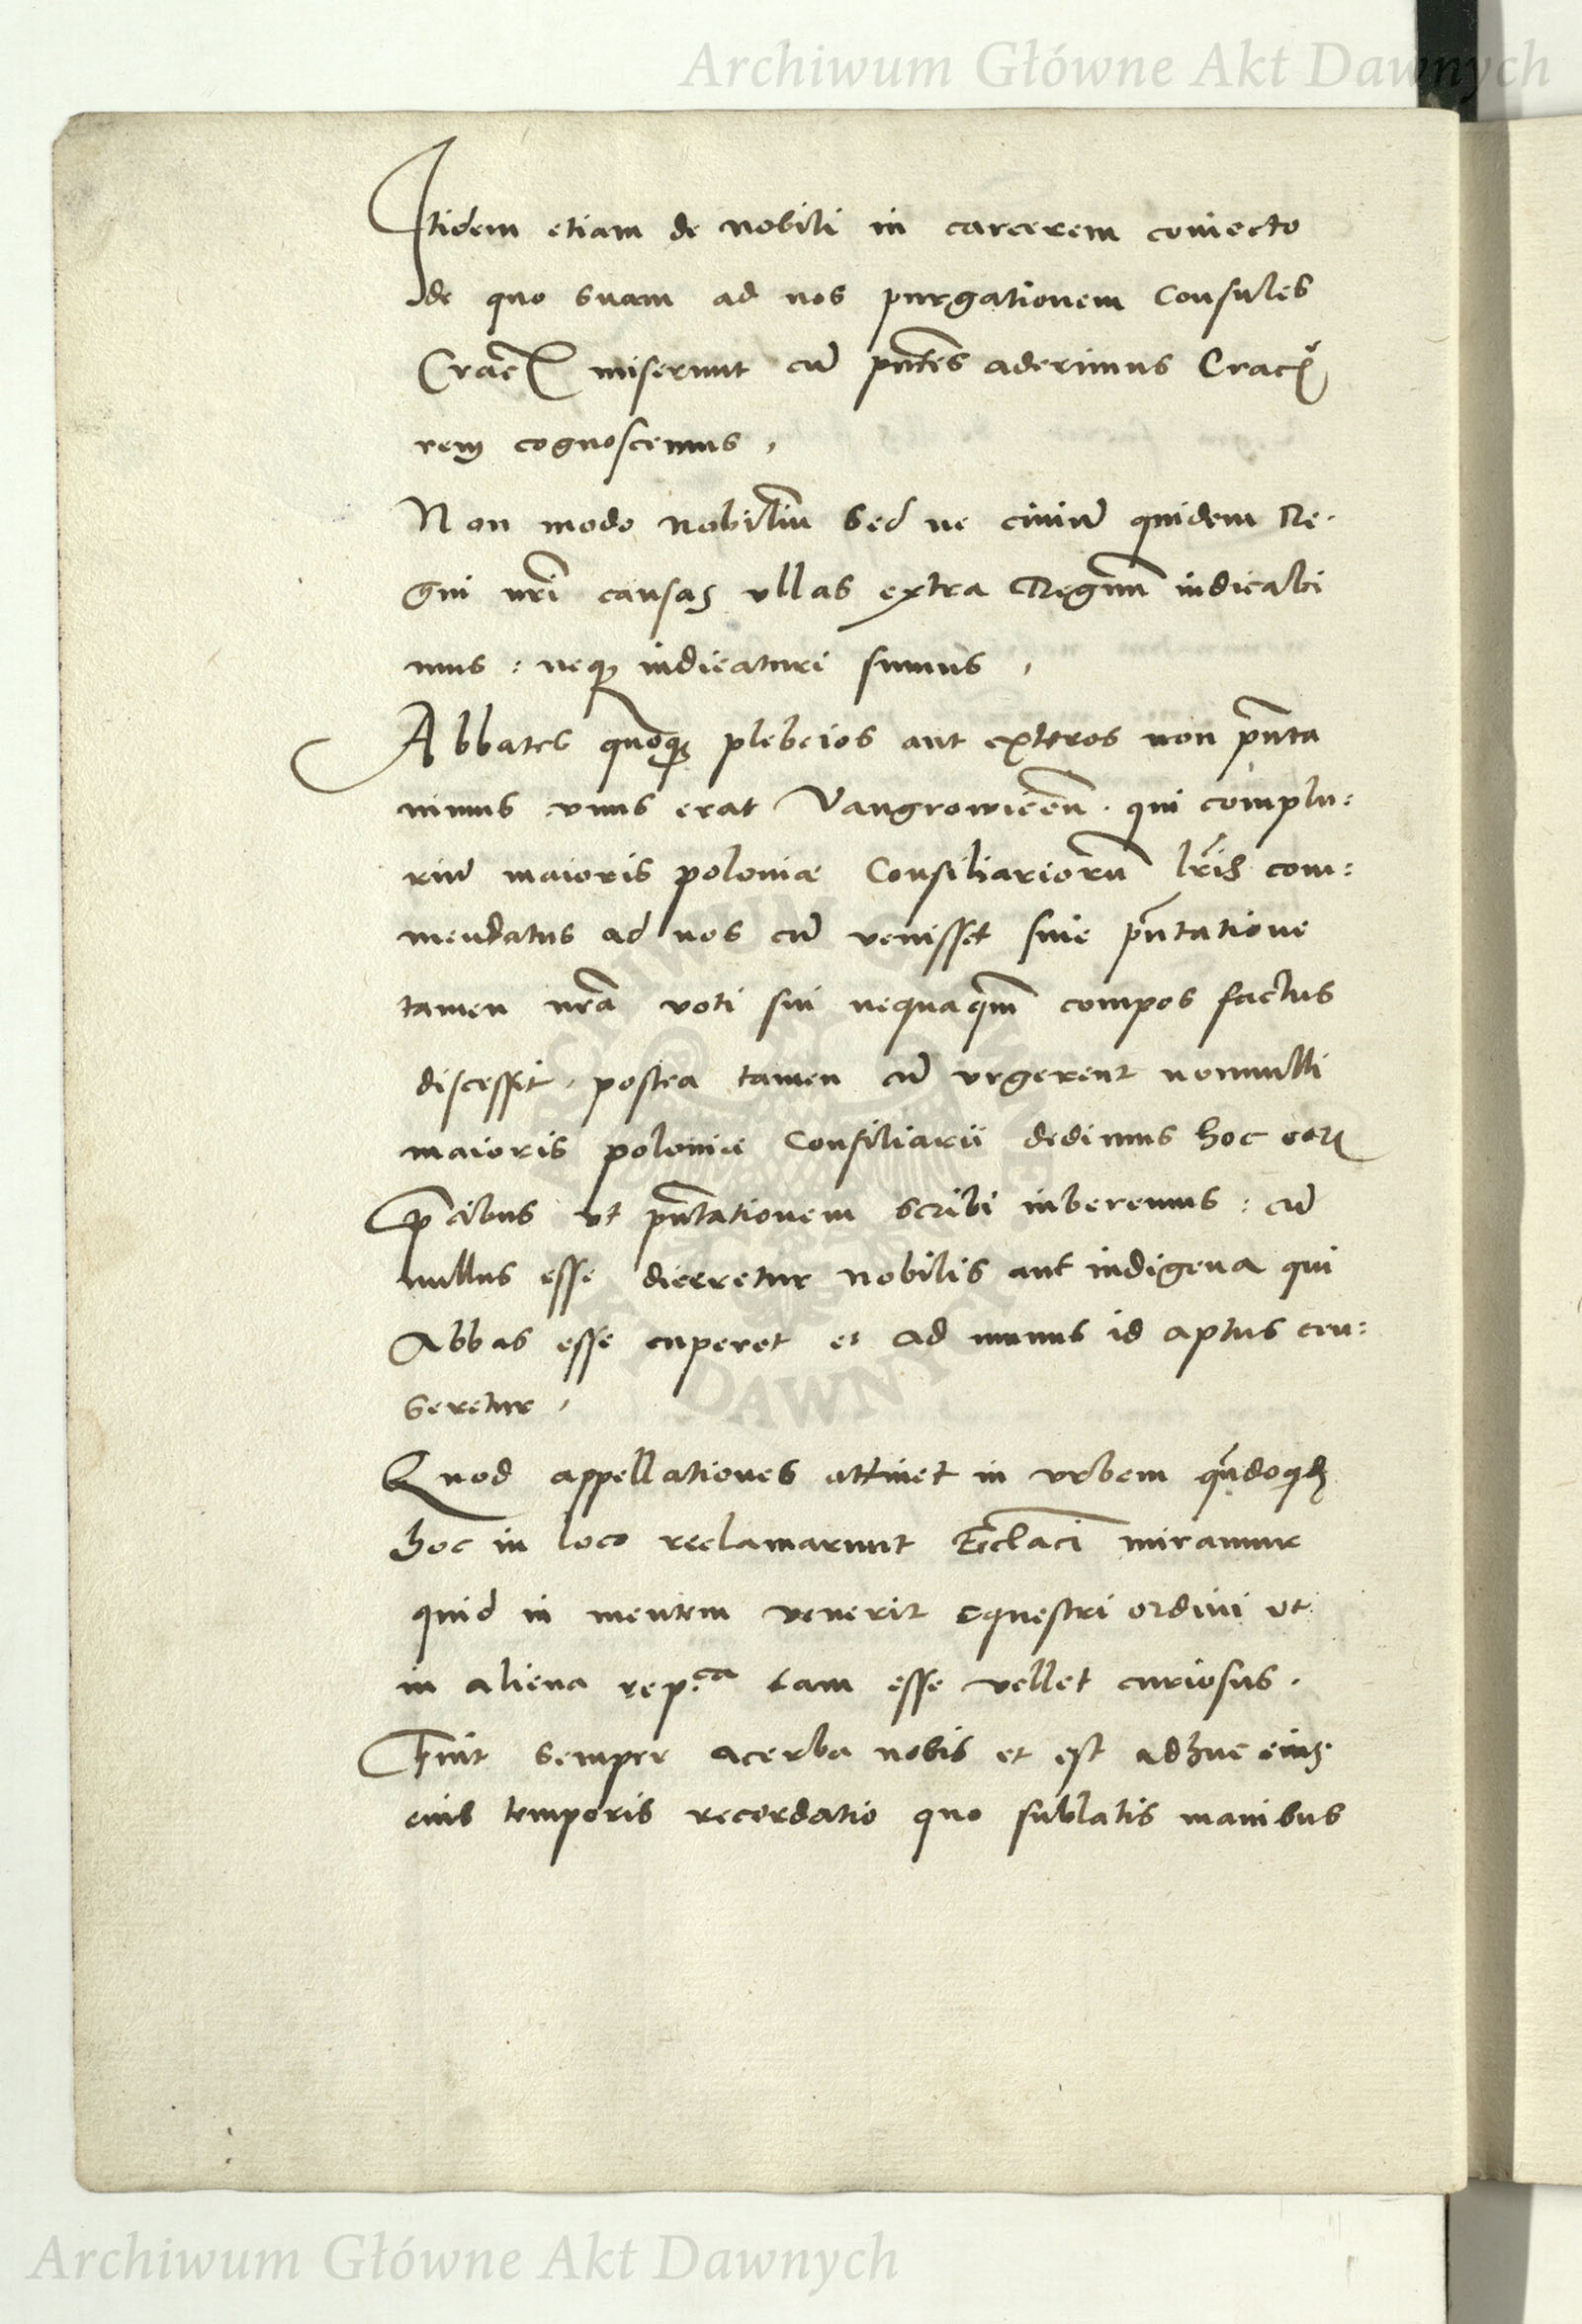 Archiwum Główne Akt Dawnych
Itidem etiam de nobili in carcerem coniecto
de quo suam ad nos purgationem Consules
Crac̃ miserunt cũ pñtes aderimus Crac̃
rem cognoscemus,
Non modo nobiliũ sed ne ciuiũ quidem Re-
gni nr̃i causas ullas extra Regnũ iudicabi
mus: neq; iudicaturi sumus,
Abbates quoq; plebeios aut exteros non pñta
uimus vnus erat Vangrowiceñ. qui complu:
riũ maioris poloniæ Consiliariorũ lr̃is com:
mendatus ad nos cũ venisset sine pñtatione
tamen nr̃a voti sui nequaqm̃ compos factus
discessit, postea tamen cũ vrgerent nonnulli
maioris poloniæ Consiliarii dedimus hoc eorꝝ
p̃cibus vt pñtationem scribi iuberemus: cũ
nullus esse diceretur nobilis aut indigena qui
Abbas esse cuperet et ad munus id aptus cen:
seretur,
Quod appellationes attinet in vrbem qñdoq;dẽ
hoc in loco reclamarunt Ecc̃laci miramur
quid in mentem venerit equestri ordini vt
in aliena rep.ca tam esse vellet curiosus.
Fuit semper acerba nobis et est adhuc
eius temporis recordatio quo sublatis manibus
ARCHIWUM GŁÓWNE AKT DAWNYCH
Archiwum Główne Akt Dawnych